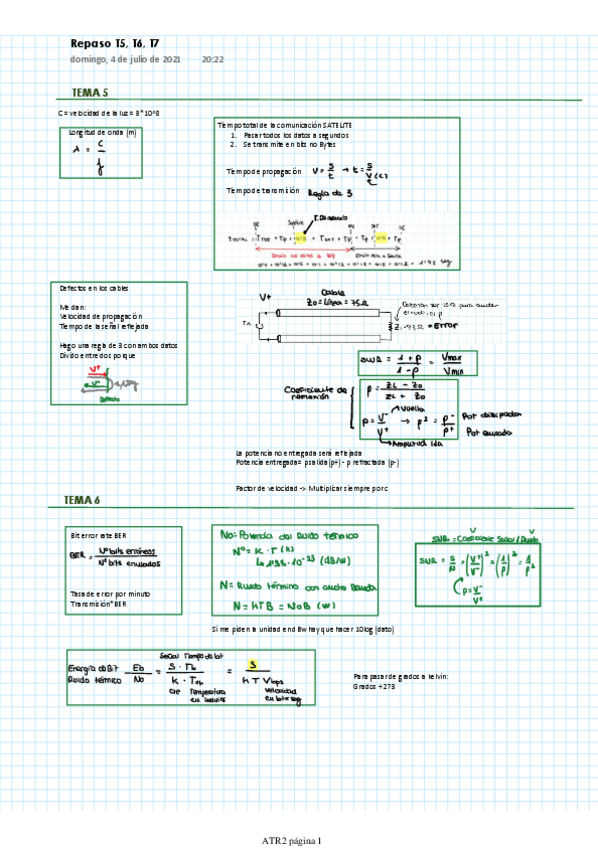 Repaso T5, T6, T7
domingo, 4 de julio de 2021 20:22
TEMA 5
C = velocidad de la luz = 3*10^8
Longitud de onda (m)
λ = c / f
Tiempo total de la comunicación SATELITE
1. Pasar todos los datos a segundos
2. Se transmite en bits no Bytes
Tiempo de propagación V = s/t → t = s/V(c)
Tiempo de transmisión Regla de 3
Defectos en los cables
Me dan:
Velocidad de propagación
Tiempo de la señal reflejada
Hago una regla de 3 con ambos datos
Divido entre dos porque
V+
V-
Defecto
V+
Cable
Zo = Línea = 75Ω
Tx
= Error
SWR = 1 + ρ / 1 - ρ = Vmax / Vmin
Coeficiente de
ρ = ZL - Zo / ZL + Zo
ρ = V- / V+ → ρ² = P- / P+
Vuelta
Amplitud Ida
Pot disipada
La potencia no entregada será reflejada
Potencia entregada= psalida(p+) - p refractada (p-)
Factor de velocidad -> Multiplicar siempre por c
TEMA 6
Bit error rate BER
BER = Nº bits erróneos / Nº bits enviados
Tasa de error por minuto
Transmisión*BER
No = Potencia del Ruido térmico
Nº = K · T (K)
N = Ruido térmico con ancho Banda
N = KTB = NoB (W)
SNR = Coeficiente Señal / Ruido
SNR = S/N = (V+/V-)² = (1/ρ)² = 1/ρ²
ρ = V- / V+
Si me piden la unidad en dBw hay que hacer 10log (dato)
Señal Tiempo de bit
Energía de Bit Eb / Ruido térmico No = S · Tb / K · Tk = S / K T Vbps
cte Temperatura
velocidad en bits seg
Para pasar de grados a kelvin:
Grados +273
ATR2 página 1